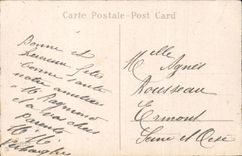 Carte Postale-Post Card
Bonne et
heureuse fête
bonne santé
notre
à M. Raymond
à vos chers
parents
Melle Agnès
Rousseau
Ermont
Seine et Oise